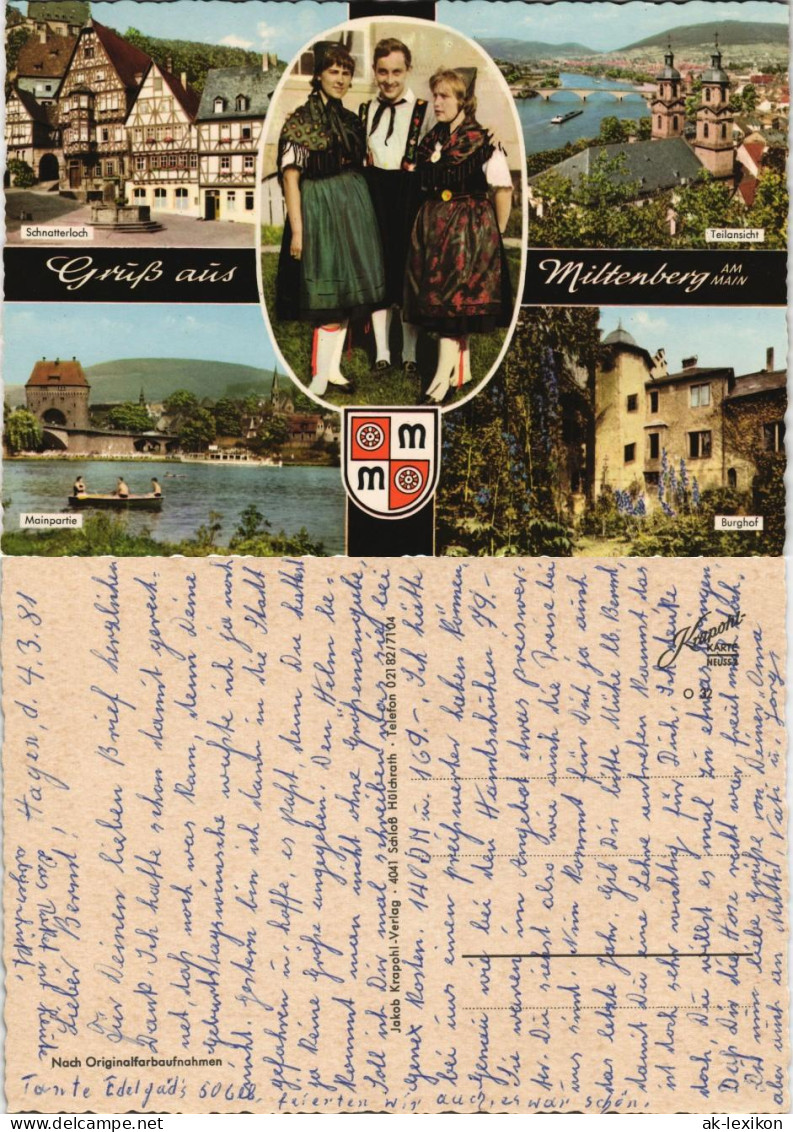 Schnatterloch
Teilansicht
Gruß aus
Miltenberg AM MAIN
Mainpartie
M
M
Burghof
Krapohl-
KARTE
NEUSS
O 32
Jakob Krapohl-Verlag · 4041 Schloß Hülchrath · Telefon 0 21 82/71 04
Nach Originalfarbaufnahmen
Hagen, d. 4.3.81
Lieber Bernd!
Für Deinen lieben Brief herzlichen
Dank. Ich hatte schon damit gerech-
net, daß noch was kam, denn Deine
Geburtstagswünsche wußte ich ja noch
nicht. Gestern bin ich dann in die Stadt
gefahren u. hoffe, es paßt, denn Du hattest
ja keine Größe angegeben. Den Helm be-
kommt man nicht ohne Größenangabe.
Soll ich Dir mal schreiben, was sie bei
Genex kosten. 140 DM u. 169.-. Ich hätte
bei uns einen preiswerter haben können,
genau wie bei den Handschuhen 79.-
Sie waren im Angebot etwas preiswer-
ter. Du siehst also wie auch die Preise bei
uns sind. Nun kommt für Dich ja auch
das letzte Jahr. Gib Dir bitte Mühe lb. Bernd,
damit Du eine Lehre antreten kannst das
ist doch sehr wichtig für Dich. Ich denke
doch, Du willst es mal zu etwas bringen
Daß Dir die Hose nicht war freut mich.
Bis nun liebe Grüße von Deiner "Oma"
aber auch an Mutti, Vati u. Jörg.
Tante Edelgard's 50 Geb. feierten wir auch, es war schön.